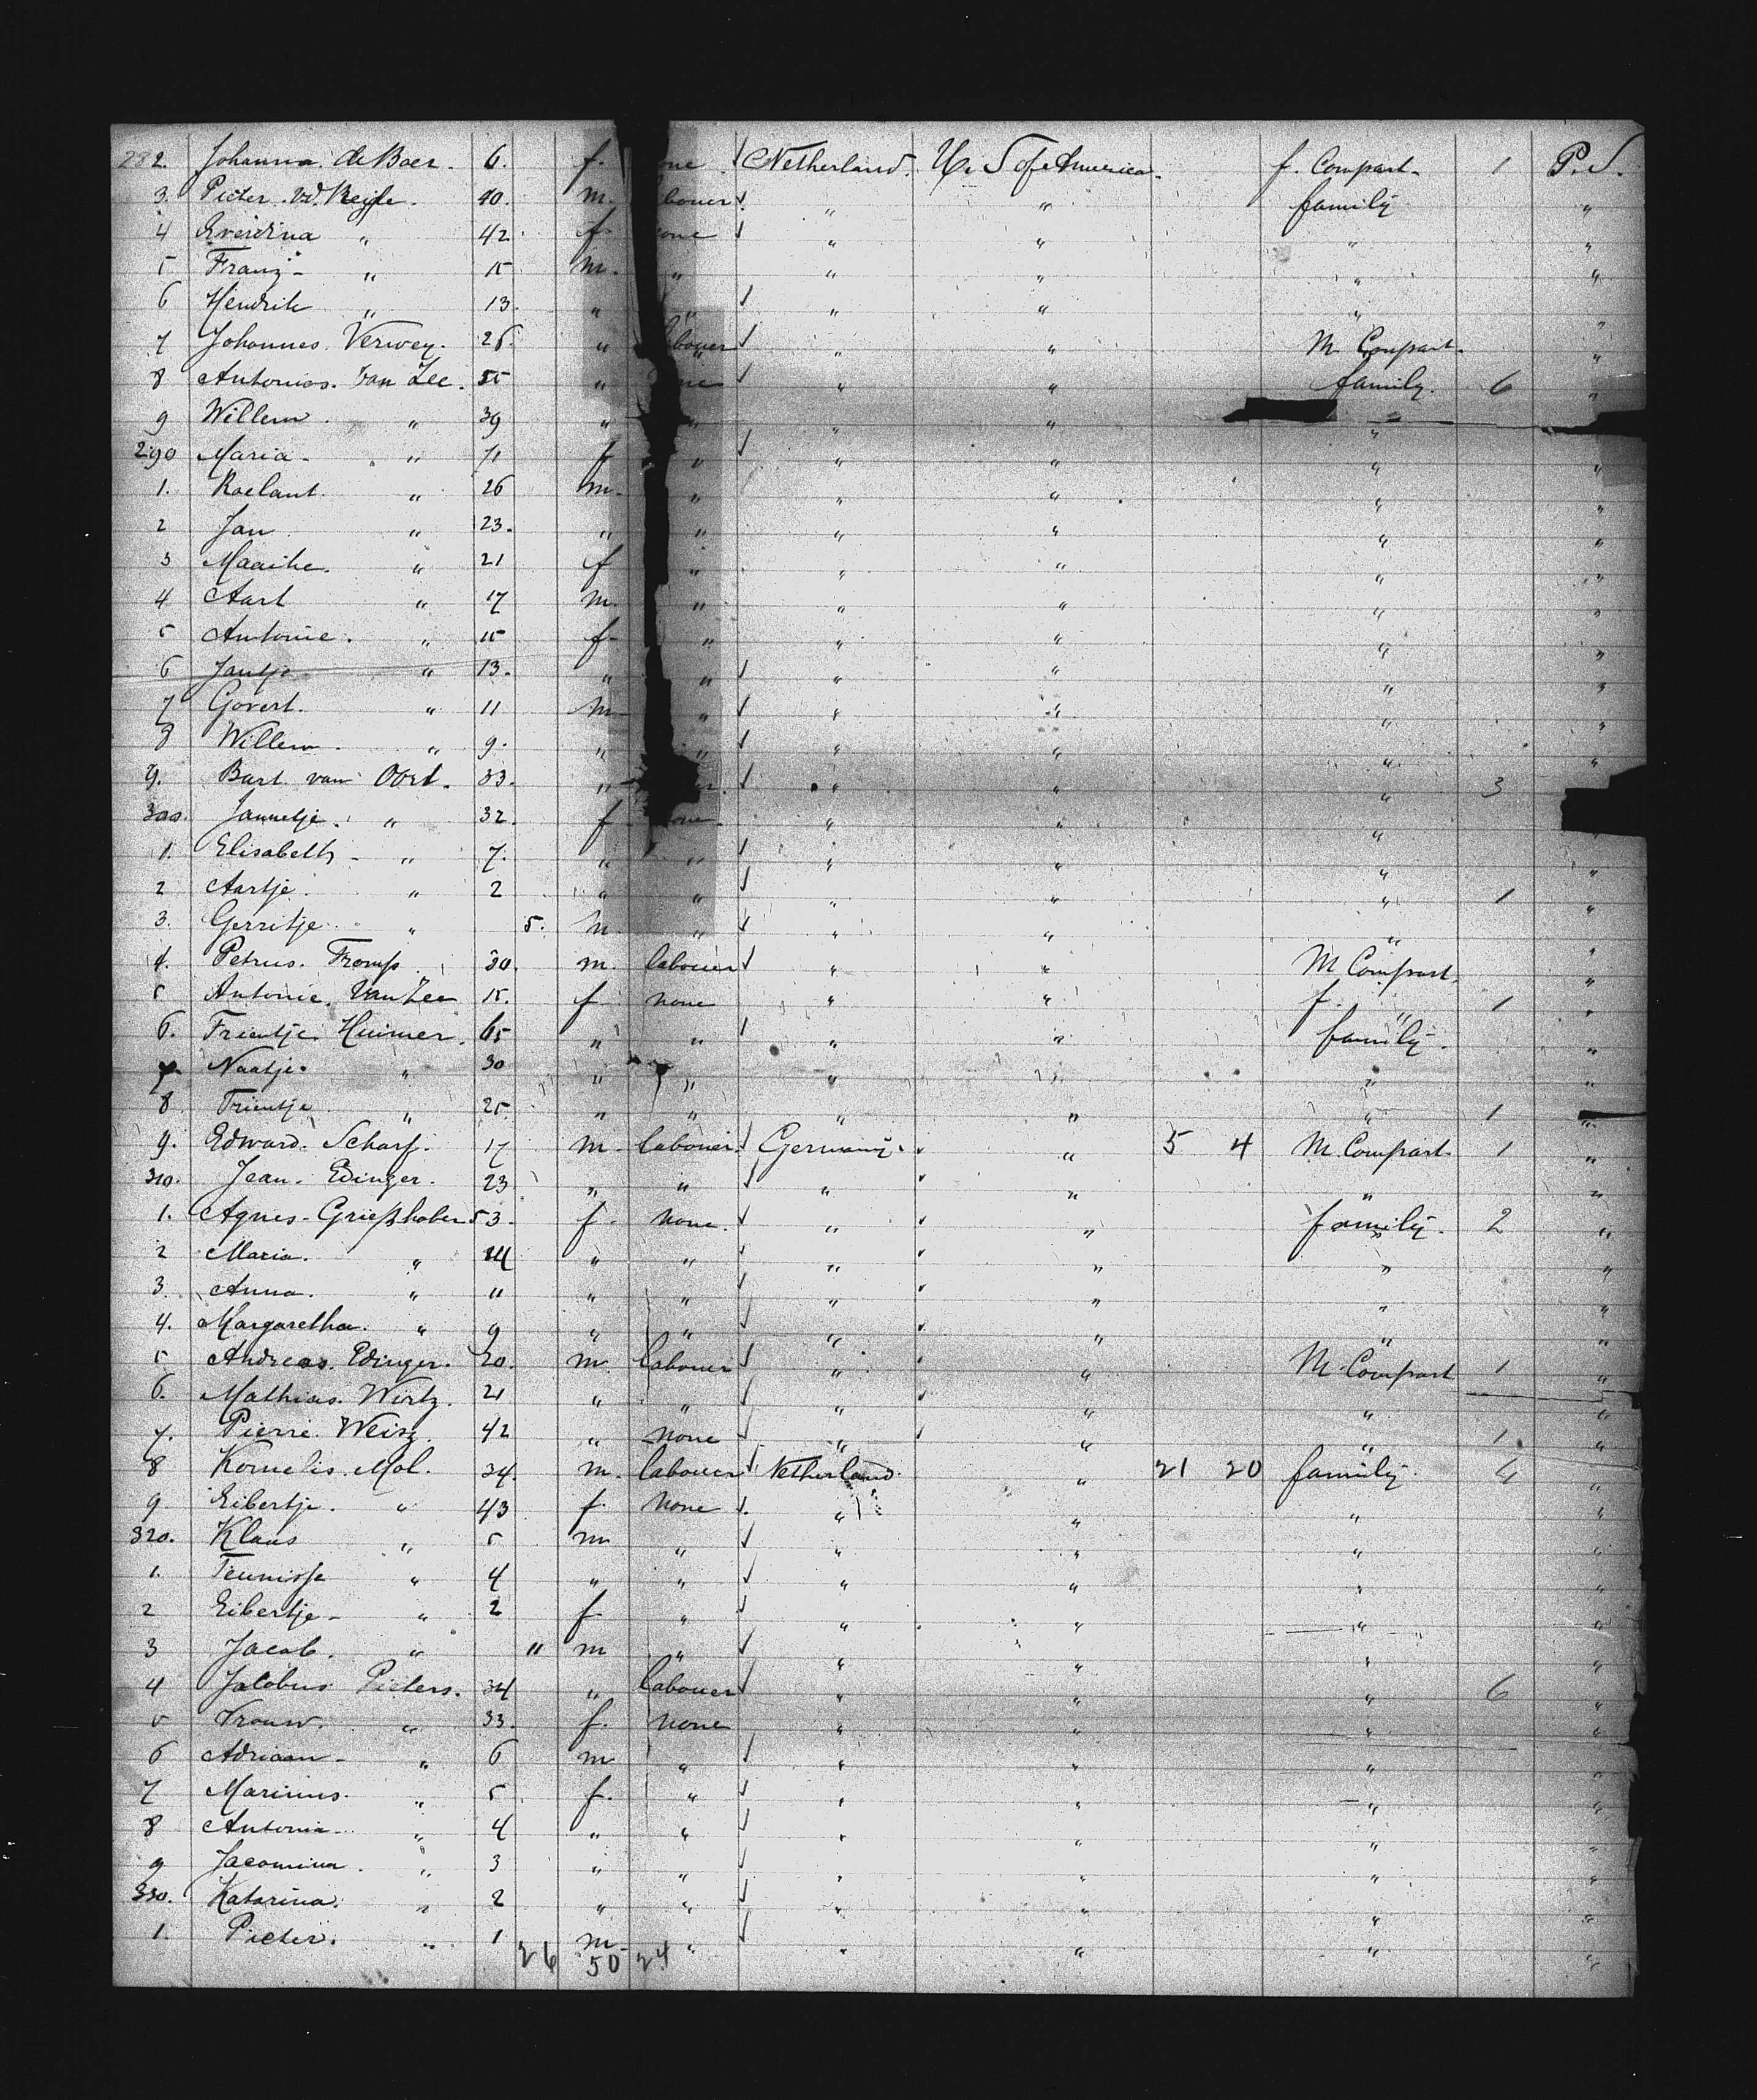 282. Johanna de Boer. 6. f. one. Netherland. U. S of America. f. Compart. 1 P.S.
3. Pieter. vd. 40. m. bouer " " family "
4 Everdina " 42 f. one " " " "
5 Franz " 15 m. " " " " "
6 Hendrik " 13. " " " " " "
7 Johannes. Verwey. 26. " labouer " " M Compart. "
8 Antonius. Van Zee. 55 " one " " family. 6 "
9 Willem " 39 " " " " "
290 Maria " 71 f " " " " "
1. Roelant. " 26 m. " " " " "
2 Jan " 23. " " " " " "
3 Maaike. " 21 f " " " " "
4 Aart " 17 m. " " " " "
5 Antonie. " 15 f. " " " " "
6 Jantje " 13. " " " " " "
7 Govert. " 11 m " " " " "
8 Willem. " 9. " " " " " "
9. Bart van Oort. 33. " er. " " " 3
300. Jannetje. " 32. f one " " " "
1. Elisabeth " 7. " " " " " "
2 Aartje. " 2 " " " " " 1 "
3. Gerritje " 5. m " " " " "
4. Petrus. Tromp 30. m. labouer " " M Compart. "
5 Antonie. Van Zee 15. f none " " f. " 1 "
6. Trientje. Huimer. 65 " " " " family. "
7 Naatje. " 30 " " " " " "
8 Trientje " 25. " " " " " 1 "
9. Edward. Scharf. 17 m. labouer. Germany. " 5 4 M. Compart. 1 "
310. Jean. Edinger. 23 " " " " " "
1. Agnes. Grießhaber 53. f. none. " " family. 2 "
2 Maria. " 14 " " " " " "
3. Anna. " 11 " " " " " "
4. Margaretha. " 9 " " " " " "
5 Andreas. Edinger. 20. m. labouer " " M. Compart 1 "
6. Mathias. Wirtz. 21 " " " " " "
7. Pierre. Weisz. 42 " none " " " 1 "
8 Kornelis. Mol. 34. m. labouer Netherland. " 21 20 family. 4 "
9 Eibertje. " 43 f. none " " " "
320. Klaas " 5 m " " " " "
1. Teunisje " 4 " " " " " "
2 Eibertje " 2 f " " " " "
3 Jacob. " 11 m " " " " "
4 Jacobus Pieters. 34 " labouer " " " 6 "
5 Vrouw. " 33. f. none " " " "
6 Adriaan " 6 m " " " " "
7 Marinus. " 5 f. " " " " "
8 Antonia " 4 " " " " " "
9 Jacomina. " 3 " " " " " "
330. Katarina. " 2 " " " " " "
1. Pieter. " 1 m " " " " "
26 50 24